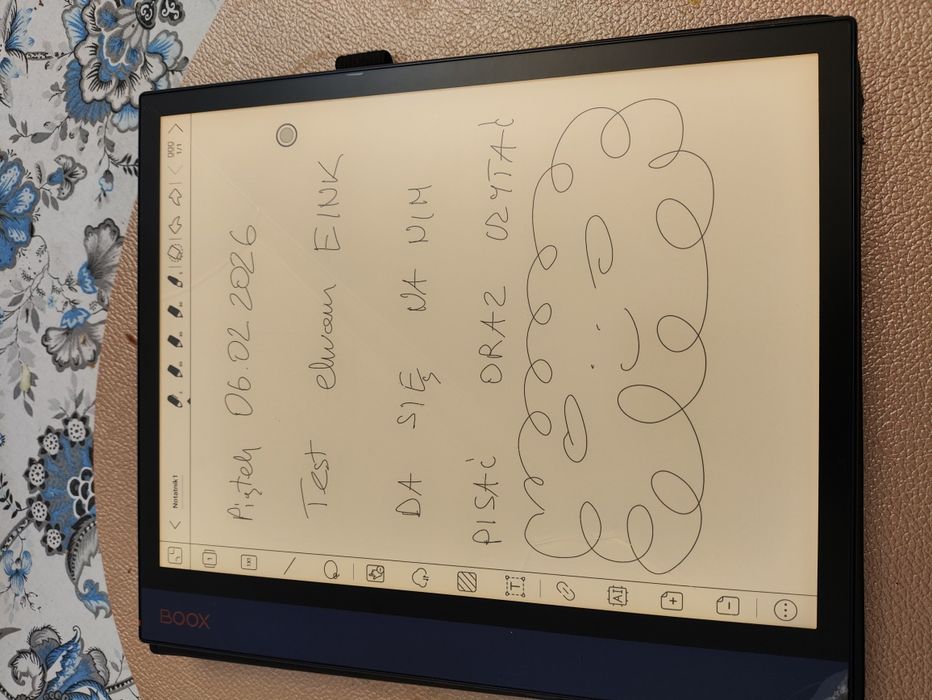 BOOX
Notatnik1
1/1
Piątek 06.02.2026
Test ekranu EINK
DA SIĘ NA NIM
PISAĆ ORAZ CZYTAĆ
T
AI